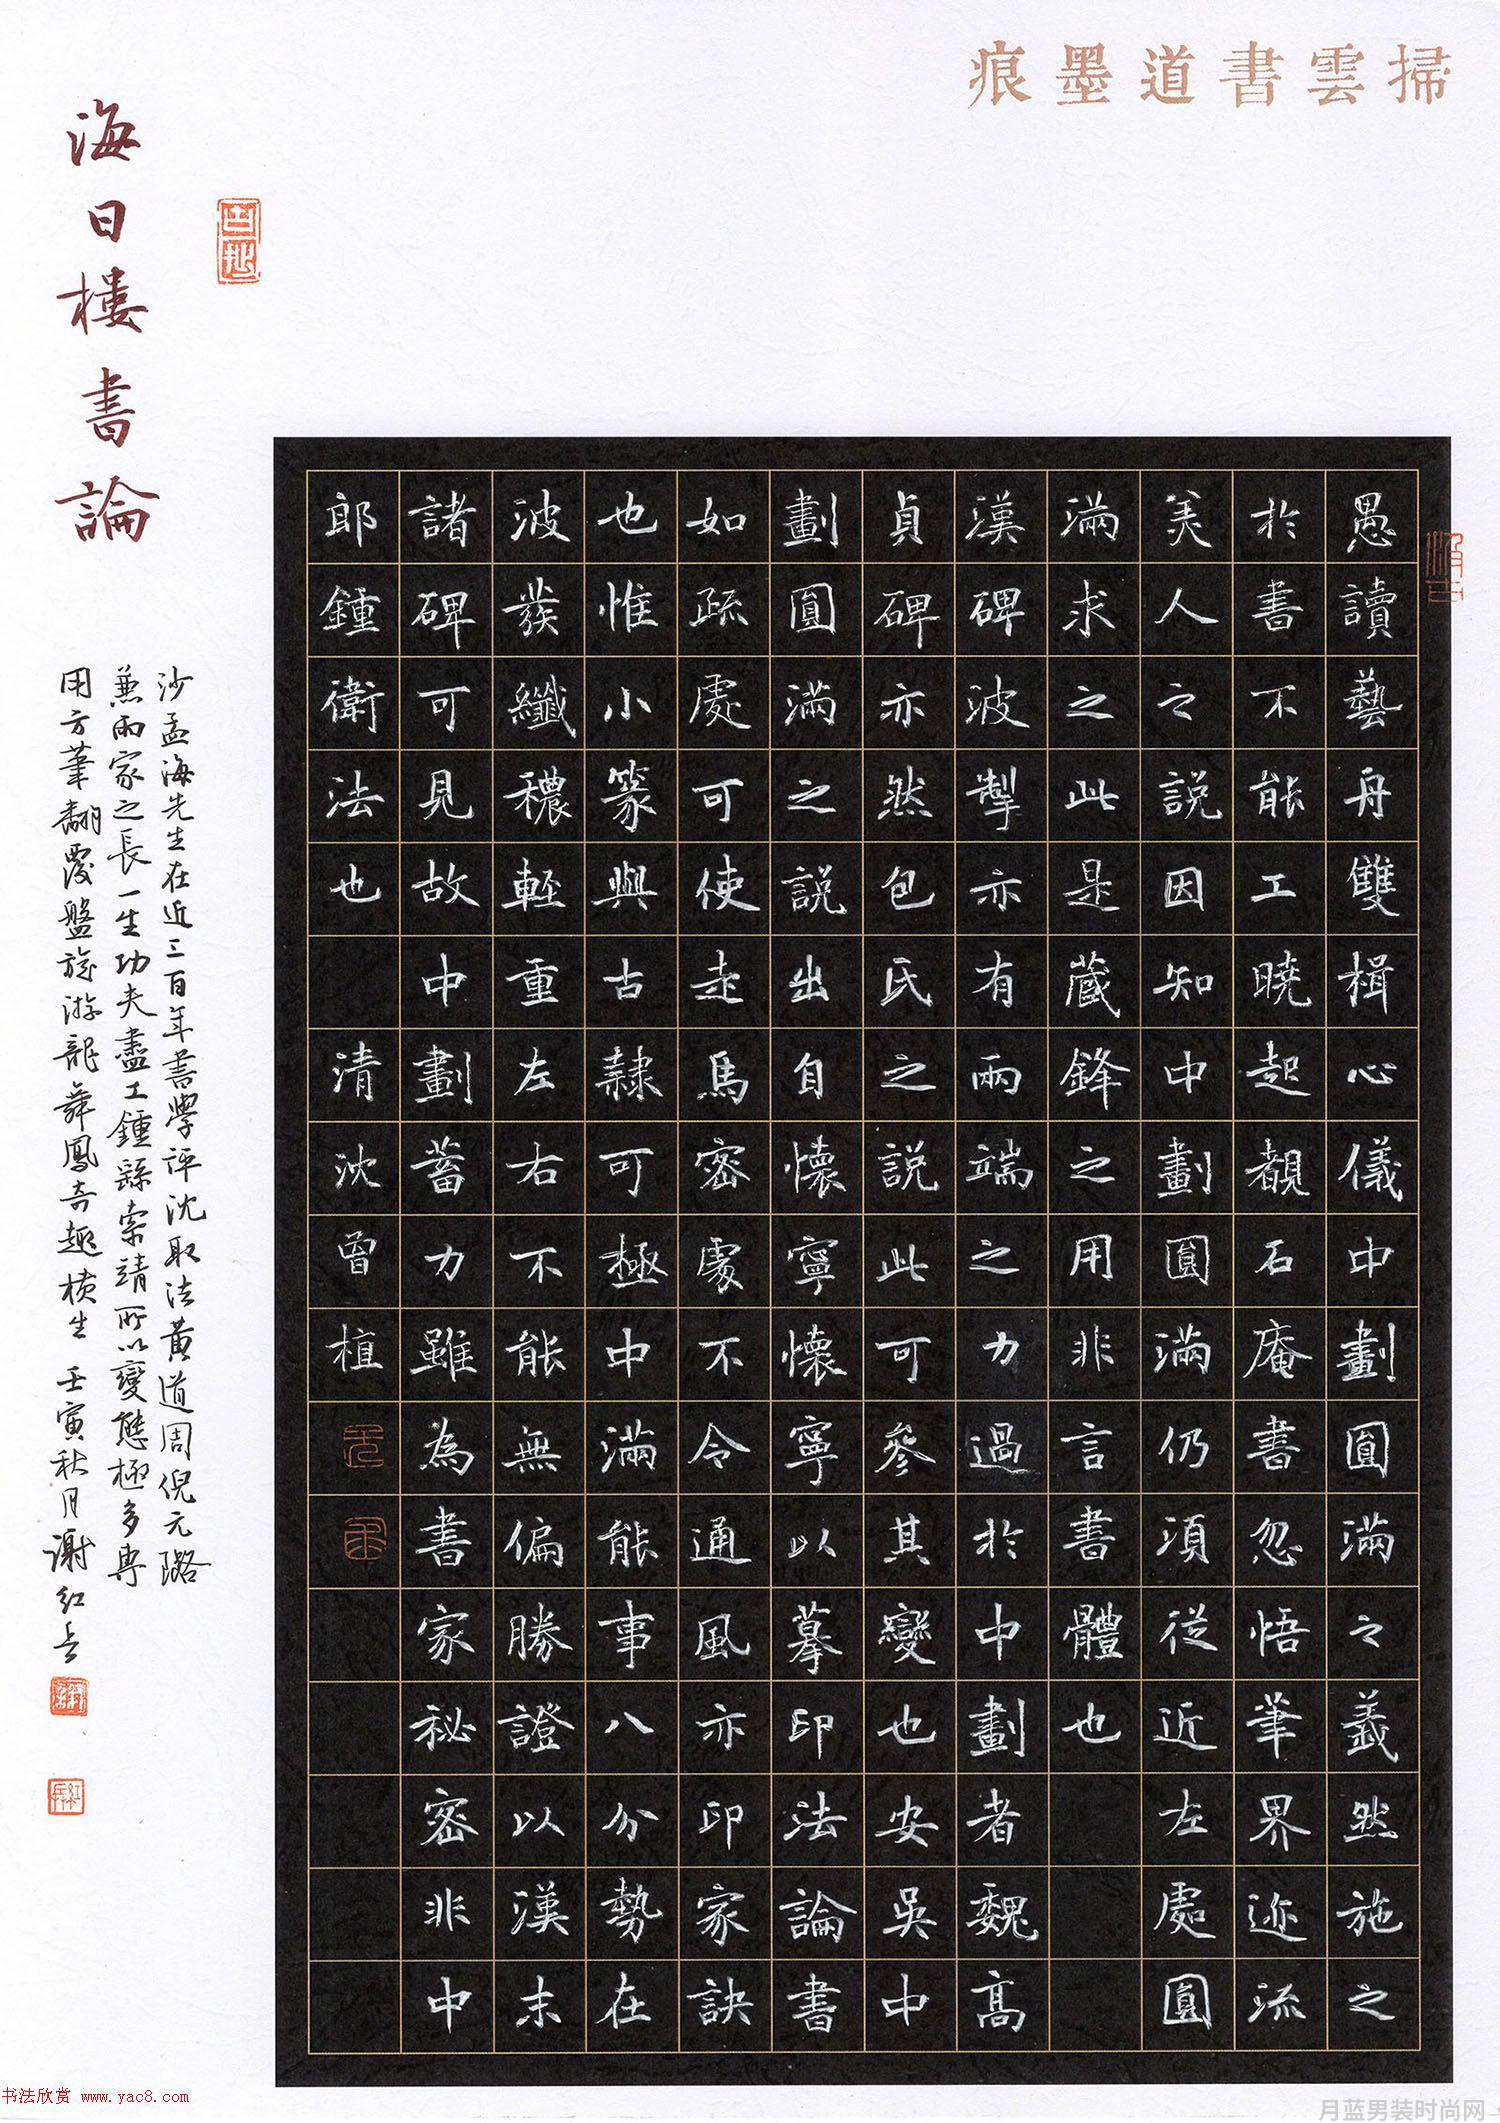 掃雲書道墨痕
愚讀藝舟雙楫心儀中劃圓滿之義然施之
於書不能工曉起覩石庵書忽悟筆界迹流
美人之説因知中劃圓滿仍須從近左處圓
滿求之此是蔵鋒之用非言書體也
漢碑波掣亦有兩端之力過於中劃者魏高
貞碑亦然包氏之説此可參其變也安吳中
劃圓滿之説出自懷寧懷寧以摹印法論書
如疏處可使走馬密處不令通風亦印家訣
也惟小篆與古隸可極中滿能事八分勢在
波發纖穠輕重左右不能無偏勝證以漢末
諸碑可見故中劃蓄力雖為書家秘密非中
郎鍾衛法也 清沈曾植
海日樓書論
沙孟海先生在近三百年書學評沈取法黃道周倪元璐
兼兩家之長一生功夫盡工鍾繇索靖所以變態極多專
用方筆翻覆盤旋游龍舞鳳奇趣橫生 壬寅秋月謝紅兵
书法欣赏 www.yac8.com
月蓝男装时尚网